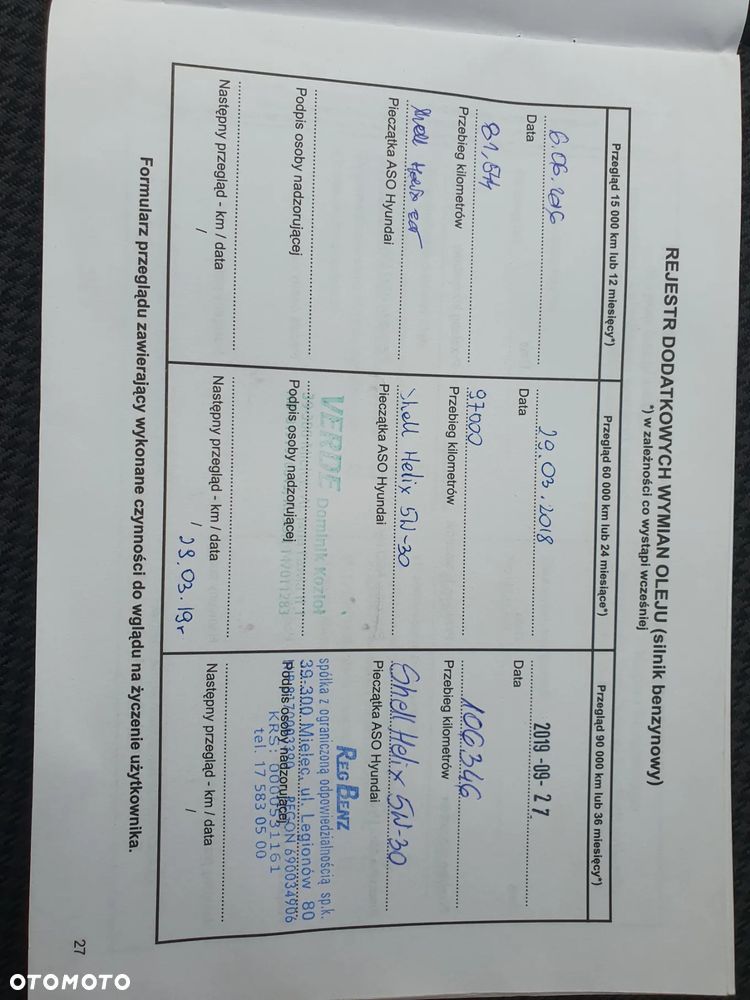 REJESTR DODATKOWYCH WYMIAN OLEJU (silnik benzynowy)
*) w zależności co wystąpi wcześniej
Przegląd 15 000 km lub 12 miesięcy*)
6.06.2016
Data
81,544
Przebieg kilometrów
Shell Helix
Pieczątka ASO Hyundai
Podpis osoby nadzorującej
Następny przegląd - km / data
/
Przegląd 60 000 km lub 24 miesiące*)
29.03.2018
Data
97000
Przebieg kilometrów
Shell Helix 5W-30
Pieczątka ASO Hyundai
VERDE Dominik Kozioł
Podpis osoby nadzorującej
Następny przegląd - km / data
/ 29.03.19r
Przegląd 90 000 km lub 36 miesięcy*)
2019-09-27
Data
106346
Przebieg kilometrów
Shell Helix 5W-30
Pieczątka ASO Hyundai
REG BENZ
spółka z ograniczoną odpowiedzialnością sp.k.
39-300 Mielec, ul. Legionów 80
REGON 690034906
Podpis osoby nadzorującej
KRS:
tel. 17 583 05 00
Następny przegląd - km / data
/
Formularz przeglądu zawierający wykonane czynności do wglądu na życzenie użytkownika.
27
OTOMOTO